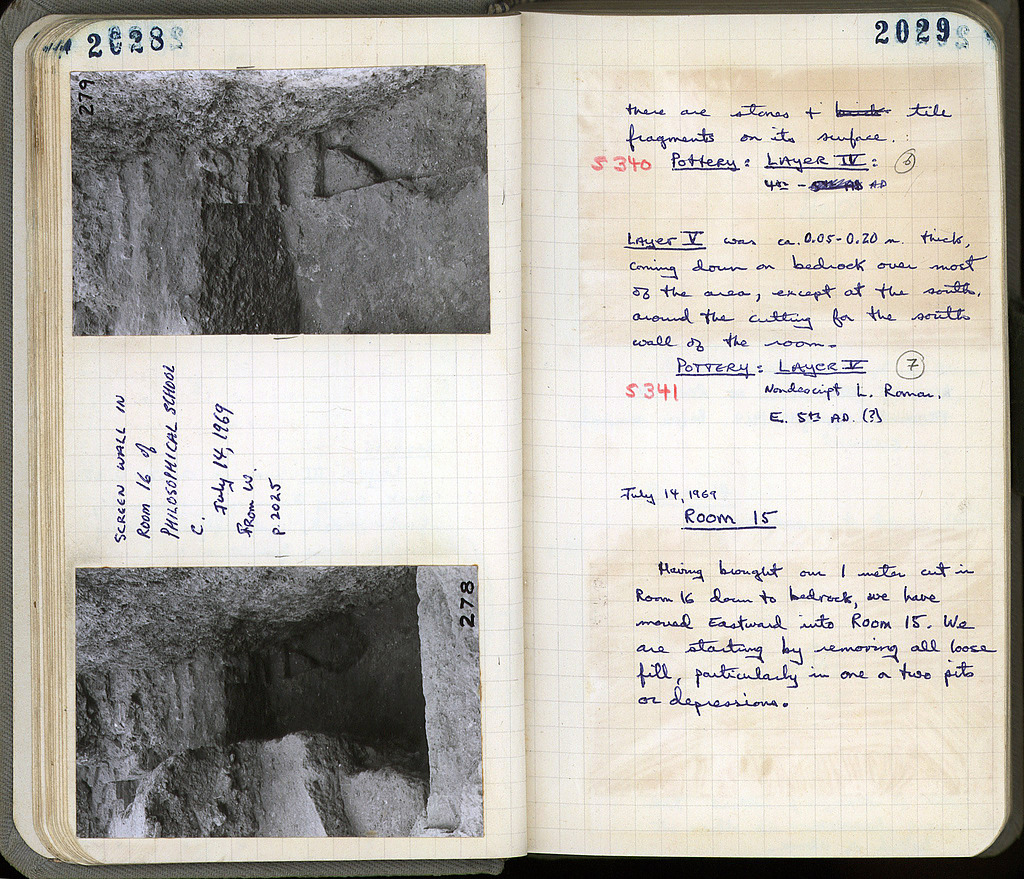 2028
279
SCREEN WALL IN
ROOM 16 of
PHILOSOPHICAL SCHOOL
C.
July 14, 1969
FROM W.
P. 2025
278
2029
there are stones + brick tile
fragments on its surface.
S 340 POTTERY: LAYER IV: 6
4th - AD
LAYER V was ca. 0.05-0.20 m. thick,
coming down on bedrock over most
of the area, except at the south,
around the cutting for the south
wall of the room.
POTTERY: LAYER V 7
S 341 Nondescript L. Roman.
E. 5th AD. (?)
July 14, 1969
ROOM 15
Having brought our 1 meter cut in
Room 16 down to bedrock, we have
moved Eastward into Room 15. We
are starting by removing all loose
fill, particularly in one or two pits
or depressions.